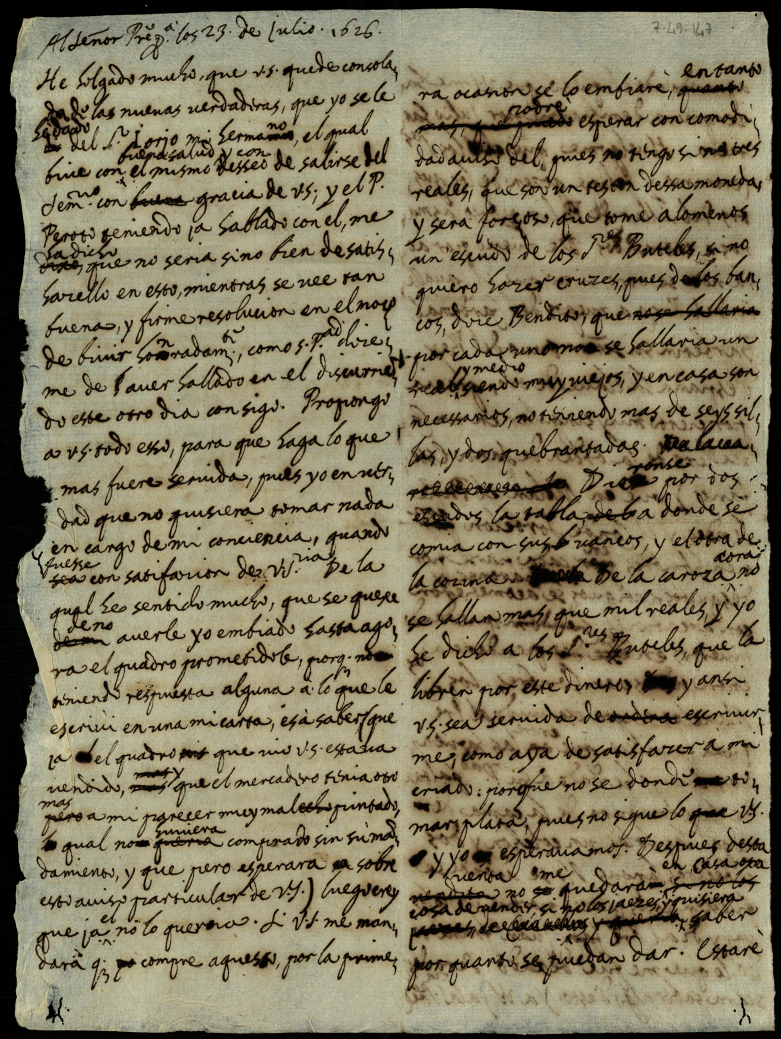 7-49-147
Al Señor Pregª. los 23. de Julio. 1626.
He holgado mucho, que v.s. quede consola,
da de las nuevas verdaderas, que yo se le
he dado del Sr. Jorjo mi hermano, el qual
bive con buena salud, y con el mismo desseo de salirse del
con gracia de v.s; y el P.
Peroto teniendo ja hablado con el, me
ha dicho, que no seria sino bien de satis,
hazello en esto, mientras se vee tan
buena, y firme resolucion en el moço
de bivir honradamte., como s. Pad. dize
me de haver hallado en el discurrien,
do este otro dia consigo. Propongo
a v.s. todo esso, para que haga lo que
mas fuere servida, pues yo en ver,
dad que no quisiera tomar nada
en cargo de mi conciencia, quando
fuesse con satisfacion de V.S.ria De la
qual he sentido mucho, que se quexe
de no averle yo embiado hasta ago,
ra el quadro prometidole, porq. no
teniendo respuesta alguna a lo qn le
escrivi en una mi carta, es a saber (que
ja el quadro que vio v.s. estava
vendido, y que el mercadero tenia otro
mas a mi parecer muy mal pintado,
lo qual no huviera comprado sin su man,
damiento, y que pero esperara sobre
esto aviso particular de V.S.) luego crey
que ja el no lo queria. Si V.S. me man,
dara q. compre aquesto, por la prime,
ra ocasion se lo embiarè, entanto
podre esperar con comodi,
dad aviso del, pues no tengo sino tres
reales, que son un teston dessa moneda,
y serà forçoso, que tome alomenos
un escudo de los Sres Buteles, si no
quiero hazer cruzes, pues de los ban,
cos, dize Bendito, que
por cada uno no se hallaria un
real y medio siendo muy viejos, y en casa son
necessarios, no teniendo mas de seys sil,
las, y dos quebrantadas.
por dos
escudos la tabla, a donde se
comia con sus bancos, y el otra de
la cozina. De la caroza aora no
se hallan mas, que mil reales, y yo
he dicho a los Sres Buteles, que la
libren por este dinero, y ansi
v.s. sea servida de escrivir,
me, como aya de satisfazer a mi
criado: porque no se donde to,
mar plata, pues no sigue lo que v.s.
y yo esperavamos. Despues desta
buenta no me quedarà en casa otra
cosa de vender, si no los jaezes, y quisiera
saber
por quanto se puedan dar. Estarè